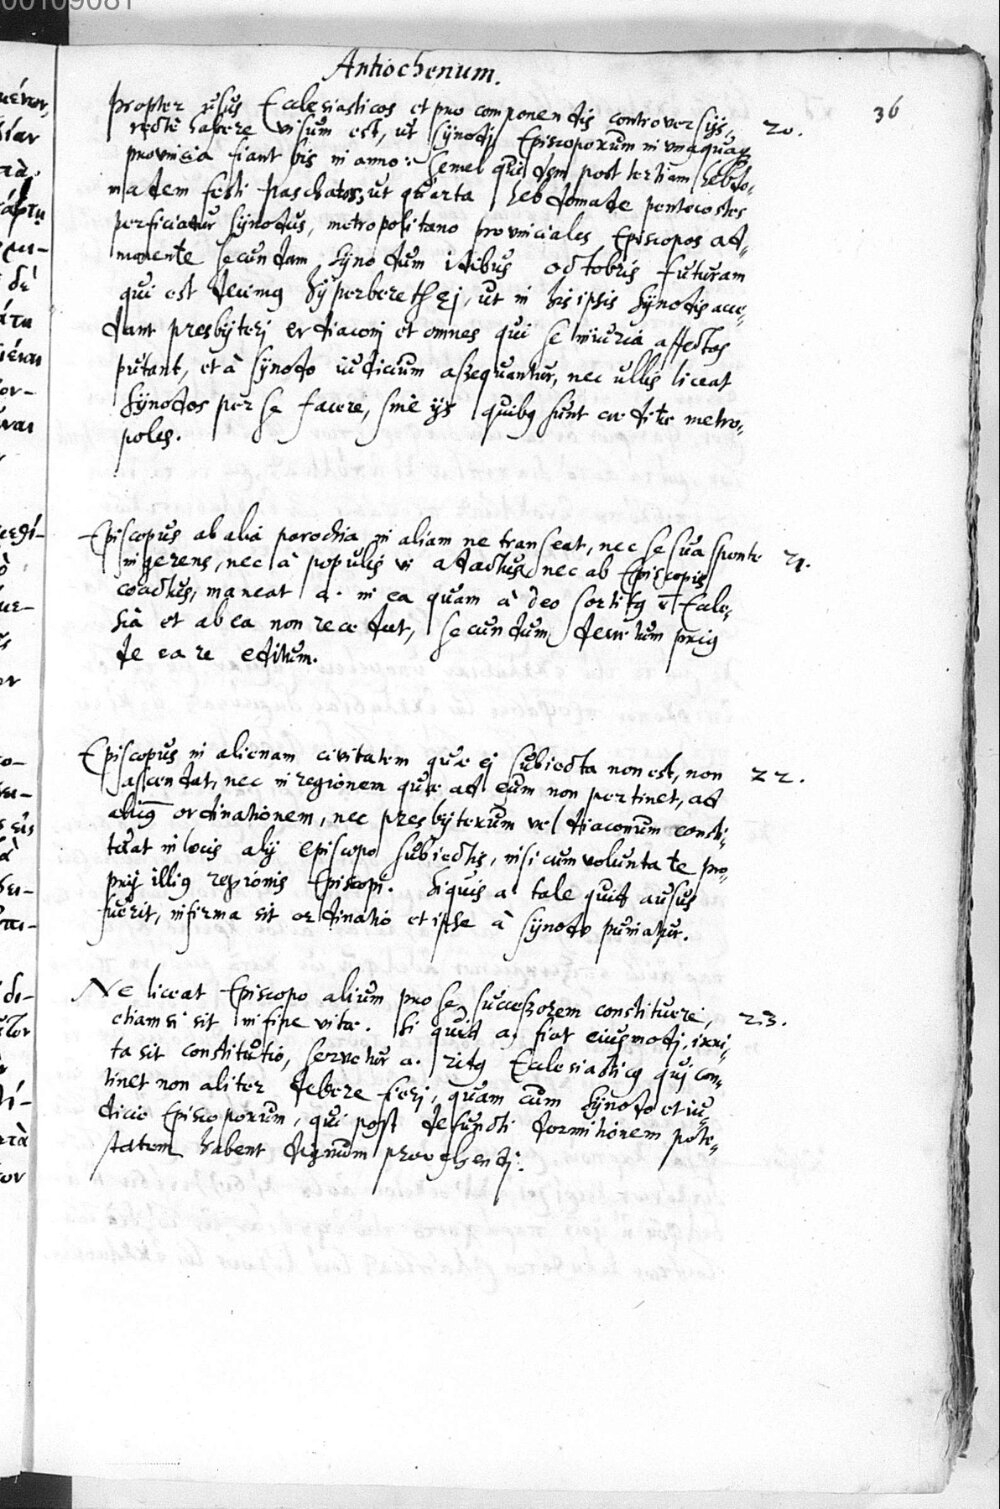 00109081
Antiochenum.
36
propter usus Ecclesiasticos et pro componendis controversijs, 20.
recte habere visum est, ut synodi Episcoporum in unaquaq
provincia fiant bis in anno: Semel quidem post tertiam hebdo-
madem festi paschatos, ut quarta hebdomade pentecostes
perficiatur synodus, metropolitano provinciales Episcopos ad-
monente secundam synodum idibus octobris futuram
qui est decimus Hyperberethei, ut in his ipsis synodis acce-
dant presbyteri et diaconi et omnes qui se iniuria affectos
putant, et à synodo iudicium assequantur, nec ullis liceat
synodos per se facere, sine ijs quibus sunt creditae metro-
poles.
Episcopus ab alia parochia in aliam ne transeat, nec se sua sponte 21.
ingerens, nec à populis vi adactus, nec ab Episcopis
coactus, maneat a. in ea quam à deo sortitus est Eccle-
sia et ab ea non recedat, secundum decretum prius
de ea re editum.
Episcopus in alienam civitatem quae ei subiecta non est, non 22.
ascendat, nec in regionem quae ad eum non pertinet, ad
alicuius ordinationem, nec presbyterum vel diaconum consti-
tuat in locis alij Episcopo subiectis, nisi cum voluntate pro-
prij illius regionis Episcopi. Siquis a. tale quid ausus
fuerit, infirma sit ordinatio et ipse à synodo puniatur.
Ne liceat Episcopo alium pro se successorem constituere, 23.
etiamsi sit in fine vitae. Si quid a. fiat eiusmodi, irri-
ta sit constitutio, servetur a. ritus Ecclesiasticus qui con-
tinet non aliter debere fieri, quam cum synodo et iu-
dicio Episcoporum, qui post defuncti dormitionem pote-
statem habent dignum provehendi.